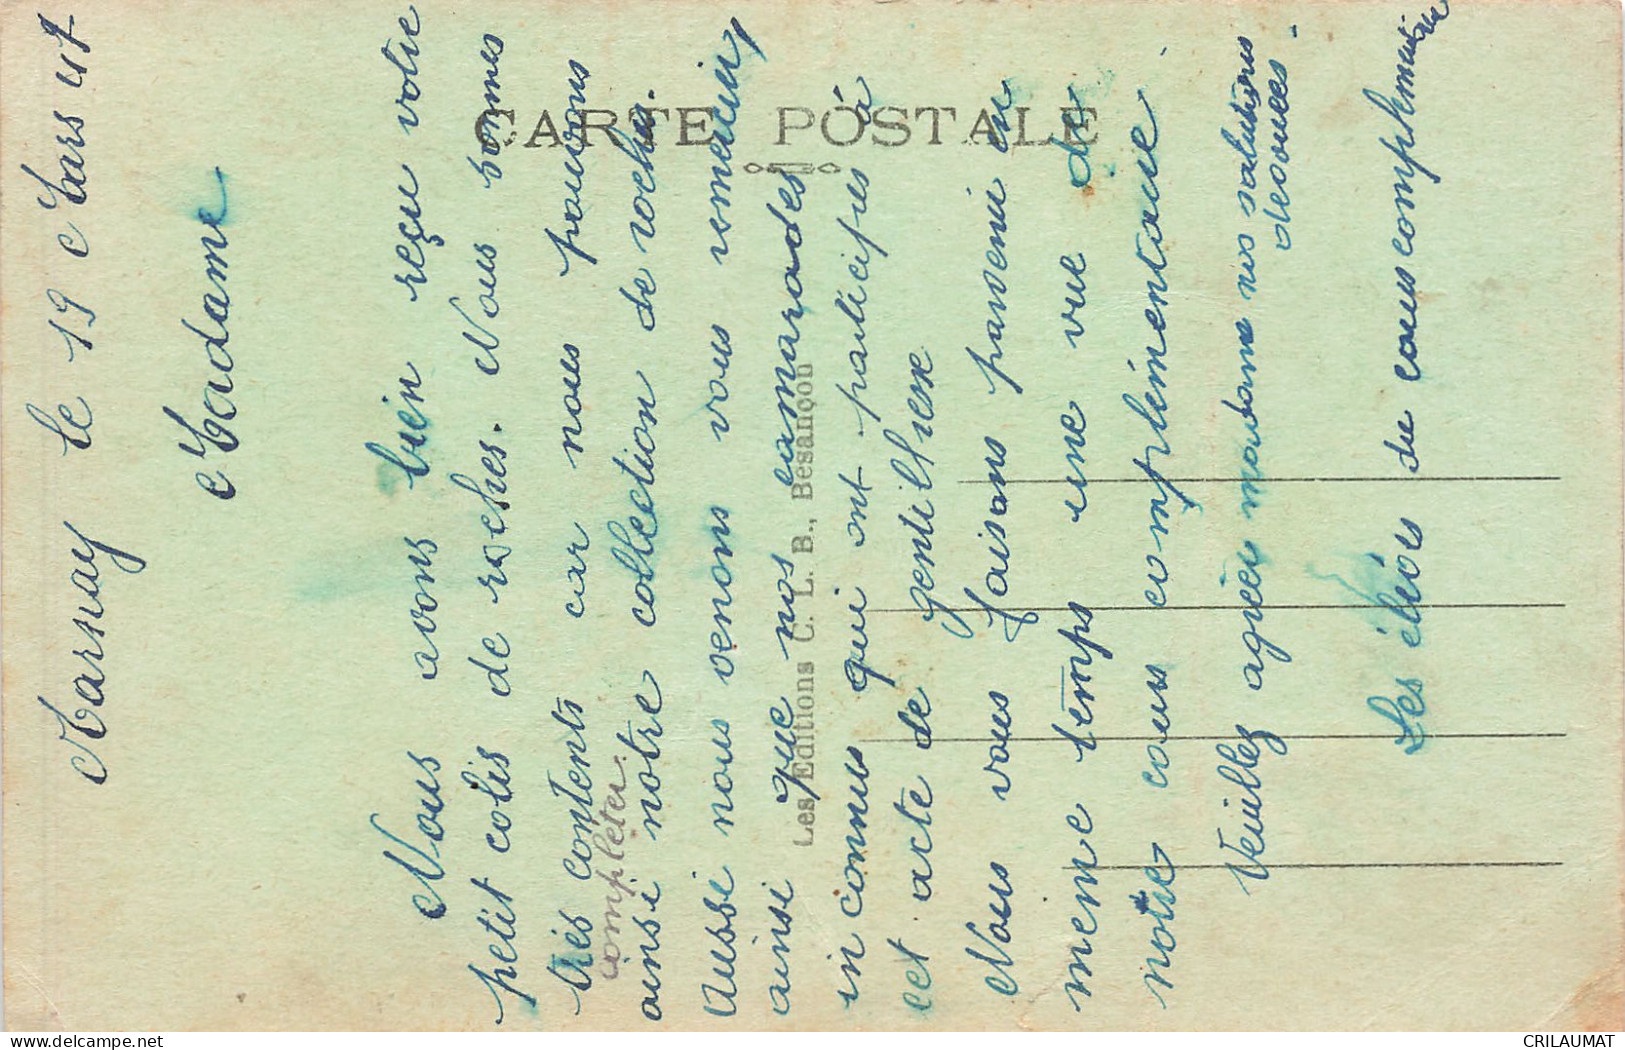 Marnay le 19 Mars 47
Madame
Nous avons bien reçu votre
petit colis de roches. Nous sommes
très contents car nous pouvons
compléter
ainsi notre collection de roches.
Aussi nous venons vous remercier,
ainsi que nos camarades
in connus qui ont participés à
cet acte de gentillesse
Nous vous faisons parvenir en
meme temps une vue de
notre cours complémentaire.
Veuillez agréer madame nos salutions
devouées.
Les élèves du cours complémentaire
CARTE POSTALE
Les Editions C. L. B., Besançon
delcampe.net
CRILAUMAT